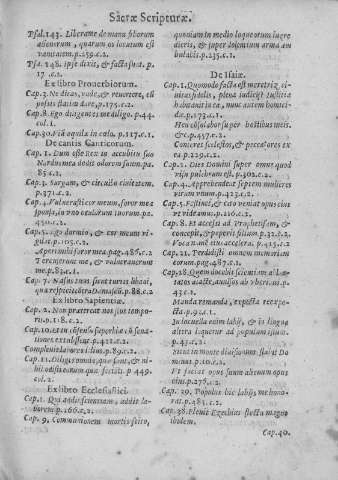 Sacræ Scripturæ.
Psal.143. Libera me de manu filiorum
alienorum, quorum os locutum est
vanitatem. p.259.c.2.
Psal. 148. ipse dixit, & facta sunt. p.
17. c.2.
Ex libro Prouerbiorum.
Cap.3. Ne dicas, vade, & reuertere, cū
possis statim dare, p.175.c.2.
Cap.8. Ego diligentes me diligo. p.44.
col.1.
Cap.30. Via aquila in cœlo. p.117.c.1.
De cantis Canticorum.
Cap. 1. Dum esset Rex in accubitu suo
Nardus mea dedit odorem suum. pa.
85.c.2.
Cap.3. Surgam, & circuibo ciuitatem.
p.371.c.2.
Cap.4. Vulnerasti cor meum, soror mea
sponsa, in vno oculorum tuorum. pa.
450.c.2.
Cap.5. Ego dormio, & cor meum vi-
gilat. p.105.c.2.
Aperi mihi soror mea. pag.486.c.2
Tenuerunt me, & vulnerauerunt
me. p.83.c.1.
Cap. 7. Nasus tuus sicut turris libani,
qua respicit contra Damascū. p.88.c.2
Ex libro Sapientiæ.
Cap.2. Non prætereat nos flos tempo-
ris. p.118.c.2.
Cap.10. & in
p.421.c.2.
p.89.c.2.
Cap.11. Diligis omnia, quæ sunt, & ni-
hil odisti eorum quæ fecisti, p 449.
col.2.
Ex libro Ecclesiastici.
Cap.1. Qui addit scientiam, addit la-
borem p.166.c.2.
Cap. 9. Communionem mortis scito,
quoniam in medio laqueorum ingre
dieris, & super dolentium arma am
bulabis. p.235.c.1.
De Isaia.
Cap.1. Quomodo facta est meretrix ci-
uitas fidelis, plena iudicij? Iustitia
habitauit in ea, nunc autem homici-
da. p.173.c.1.
Heu consolabor super hostibus meis.
&c. p.457.c.2.
Conteret scelestos, & peccatores ex
ea p.229.c.2.
Cap.2. Dies Domini super omne quod
visu pulchrum est. p.302.c.2.
Cap.4. Apprehendent septem mulieres
virum vnum. p.423.c.2.
Cap.5. Festinet, & cito veniat opus eius
vt videamus. p.216.c.1.
Cap.8. Et accessi ad Prophetissam, &
concepit, & peperit filium. p.32.c.2.
Voca nomen eius accelera. p.415.c.2
Cap.21. Tenebit memoriam
eorum. pag.487.c.1.
Cap.28. Quem docebit scientiam? Ab-
lactatos a lacte, auulsos ab vberibus. p.
435.c.1.
Manda remanda, expecta reexpe-
cta. p.92.c.1.
In loquela enim labij, & in lingua
altera loquetur ad populum istum.
p.43.c.2.
Sicut in monte diuisionum stabit Do
minus. p.10.c.2.
Et faciat opus suum alienum opus
eius. p.276.c.2.
Cap. 29. Populus hic labijs me hono-
rat. p.483.c.2.
Cap.38. Fleuit Ezechias fletu magno
Cap.40.